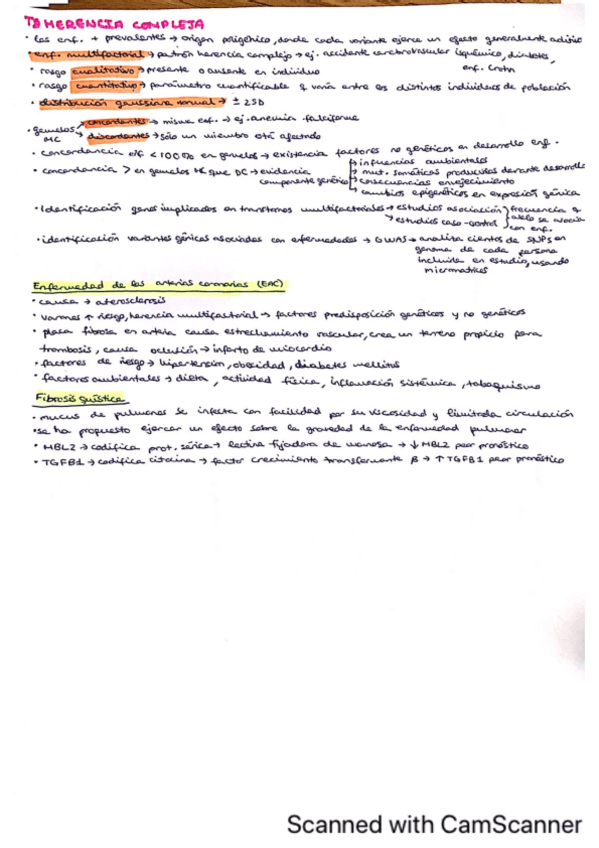 T8 HERENCIA COMPLEJA
· las enf. + prevalentes → origen poligénico, donde cada variante ejerce un efecto generalmente aditivo
· enf. multifactorial → patrón herencia complejo → ej. accidente cerebrovascular isquémico, diabetes,
enf. Crohn
· rasgo cualitativo → presente o ausente en individuo
· rasgo cuantitativo → parámetro cuantificable q varía entre los distintos individuos de población
· distribución gaussiana normal → ± 2SD
· gemelos MC → concordantes → misma enf. → ej. anemia falciforme
→ discordantes → sólo un miembro está afectado
· concordancia enf. < 100% en gemelos → existencia factores no genéticos en desarrollo enf.
→ influencias ambientales
· concordancia > en gemelos MC que DC → evidencia componente genético
→ mut. somáticas producidas durante desarrollo
→ consecuencias envejecimiento
→ cambios epigenéticos en expresión génica
· Identificación genes implicados en trastornos multifactoriales → estudios asociación
→ estudios caso-control
} frecuencia q alelo se asocia con enf.
· identificación variantes génicas asociadas con enfermedades → GWAS → analiza cientos de SNPs en
genoma de cada persona
incluida en estudio, usando
micromatrices
Enfermedad de las arterias coronarias (EAC)
· causa → aterosclerosis
· varones ↑ riesgo, herencia multifactorial → factores predisposición genéticos y no genéticos
· placa fibrosa en arteria causa estrechamiento vascular, crea un terreno propicio para
trombosis, causa oclusión → infarto de miocardio
· factores de riesgo → hipertensión, obesidad, diabetes mellitus
· factores ambientales → dieta, actividad física, inflamación sistémica, tabaquismo
Fibrosis quística
· mucus de pulmones se infecta con facilidad por su viscosidad y limitada circulación
· se ha propuesto ejercer un efecto sobre la gravedad de la enfermedad pulmonar
· MBL2 → codifica prot. sérica → lectina fijadora de manosa → ↓ MBL2 peor pronóstico
· TGFB1 → codifica citocina → factor crecimiento transformante β → ↑ TGFB1 peor pronóstico
Scanned with CamScanner